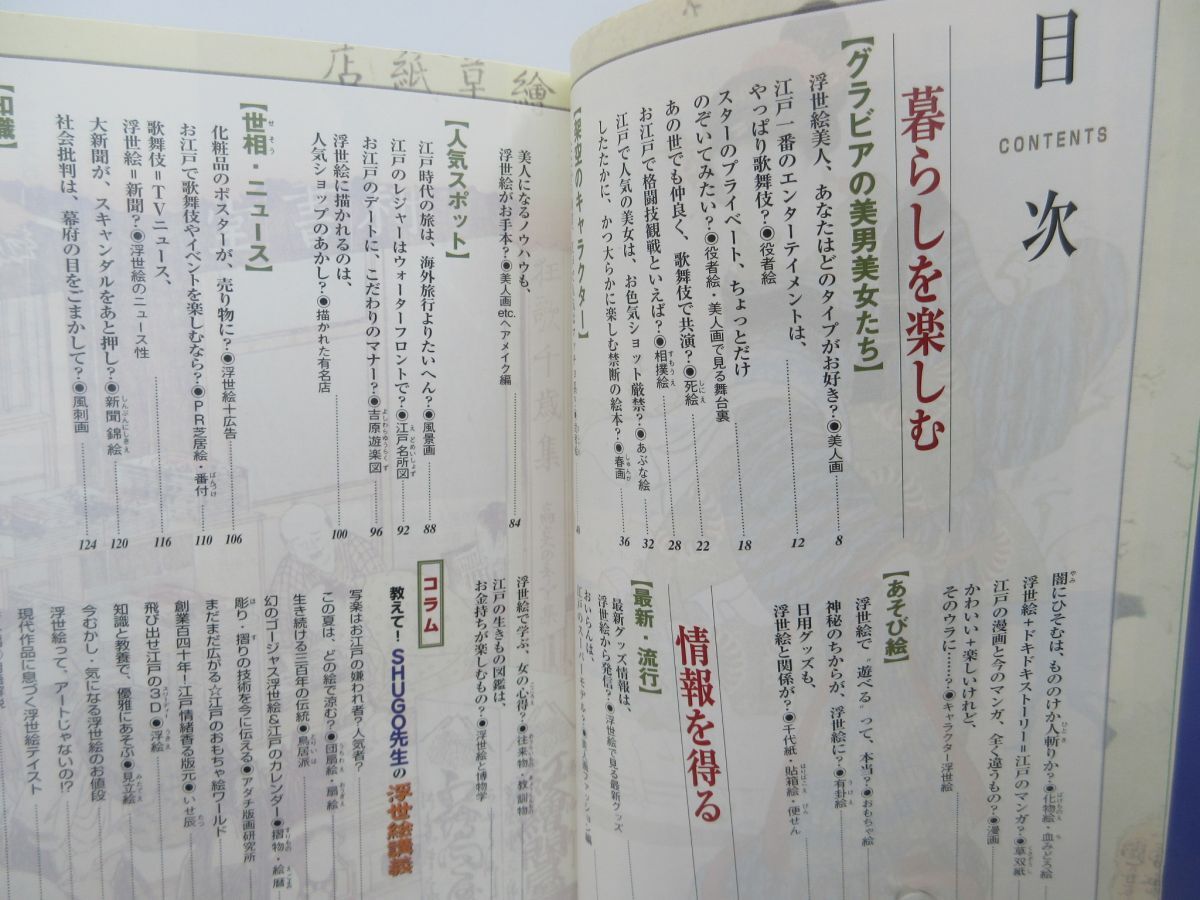 目次
CONTENTS
暮らしを楽しむ
【グラビアの美男美女たち】
浮世絵美人、あなたはどのタイプがお好き?◉美人画 8
江戸一番のエンターテイメントは、
やっぱり歌舞伎?◉役者絵 12
スターのプライベート、ちょっとだけ
のぞいてみたい?◉役者絵・美人画で見る舞台裏 18
あの世でも仲良く、歌舞伎で共演?◉死絵 22
お江戸で格闘技観戦といえば?◉相撲絵 28
江戸で人気の美女は、お色気ショット厳禁?◉あぶな絵 32
したたかに、かつ大らかに楽しむ禁断の絵本?◉春画 36
【架空のキャラクター】
闇にひそむは、もののけか人斬りか?◉化物絵・血みどろ絵
浮世絵+ドキドキストーリー=江戸のマンガ?◉草双紙
江戸の漫画と今のマンガ、全く違うもの?◉漫画
かわいい+楽しいけれど、
そのウラに……?◉キャラクター浮世絵
【あそび絵】
浮世絵で〝遊べる〟って、本当?◉おもちゃ絵
神秘のちからが、浮世絵に?◉有卦絵
日用グッズも、
浮世絵と関係が?◉千代紙・貼箱絵・便せん
情報を得る
【最新・流行】
最新グッズ情報は、
浮世絵から発信?◉浮世絵で見る最新グッズ
おいらんは、
繪草紙店
美人になるノウハウも、
浮世絵がお手本?◉美人画etc.ヘアメイク編 84
【人気スポット】
江戸時代の旅は、海外旅行よりたいへん?◉風景画 88
江戸のレジャーはウォーターフロントで?◉江戸名所図 92
お江戸のデートに、こだわりのマナー?◉吉原遊楽図 96
浮世絵に描かれるのは、
人気ショップのあかし?◉描かれた有名店 100
【世相・ニュース】
化粧品のポスターが、売り物に?◉浮世絵+広告 106
お江戸で歌舞伎やイベントを楽しむなら?◉PR芝居絵・番付 110
歌舞伎=TVニュース、
浮世絵=新聞?◉浮世絵のニュース性 116
大新聞が、スキャンダルをあと押し?◉新聞錦絵 120
社会批判は、幕府の目をごまかして?◉風刺画 124
【知識】
浮世絵で学ぶ、女の心得?◉往来物・教訓物
江戸の生きもの図鑑は、
お金持ちが楽しむもの?◉浮世絵と博物学
コラム
教えて!SHUGO先生の浮世絵講義
写楽はお江戸の嫌われ者?人気者?
この夏は、どの絵で涼む?◉団扇絵・扇絵
生き続ける三百年の伝統◉鳥居派
幻のゴージャス浮世絵&江戸のカレンダー◉摺物・絵暦
彫り・摺りの技術を今に伝える◉アダチ版画研究所
まだまだ広がる☆江戸のおもちゃ絵ワールド
創業百四十年!江戸情緒香る版元◉いせ辰
飛び出せ江戸の3D◉浮絵
知識と教養で、優雅にあそぶ◉見立絵
今むかし・気になる浮世絵のお値段
浮世絵って、アートじゃないの!?
現代作品に息づく浮世絵テイスト